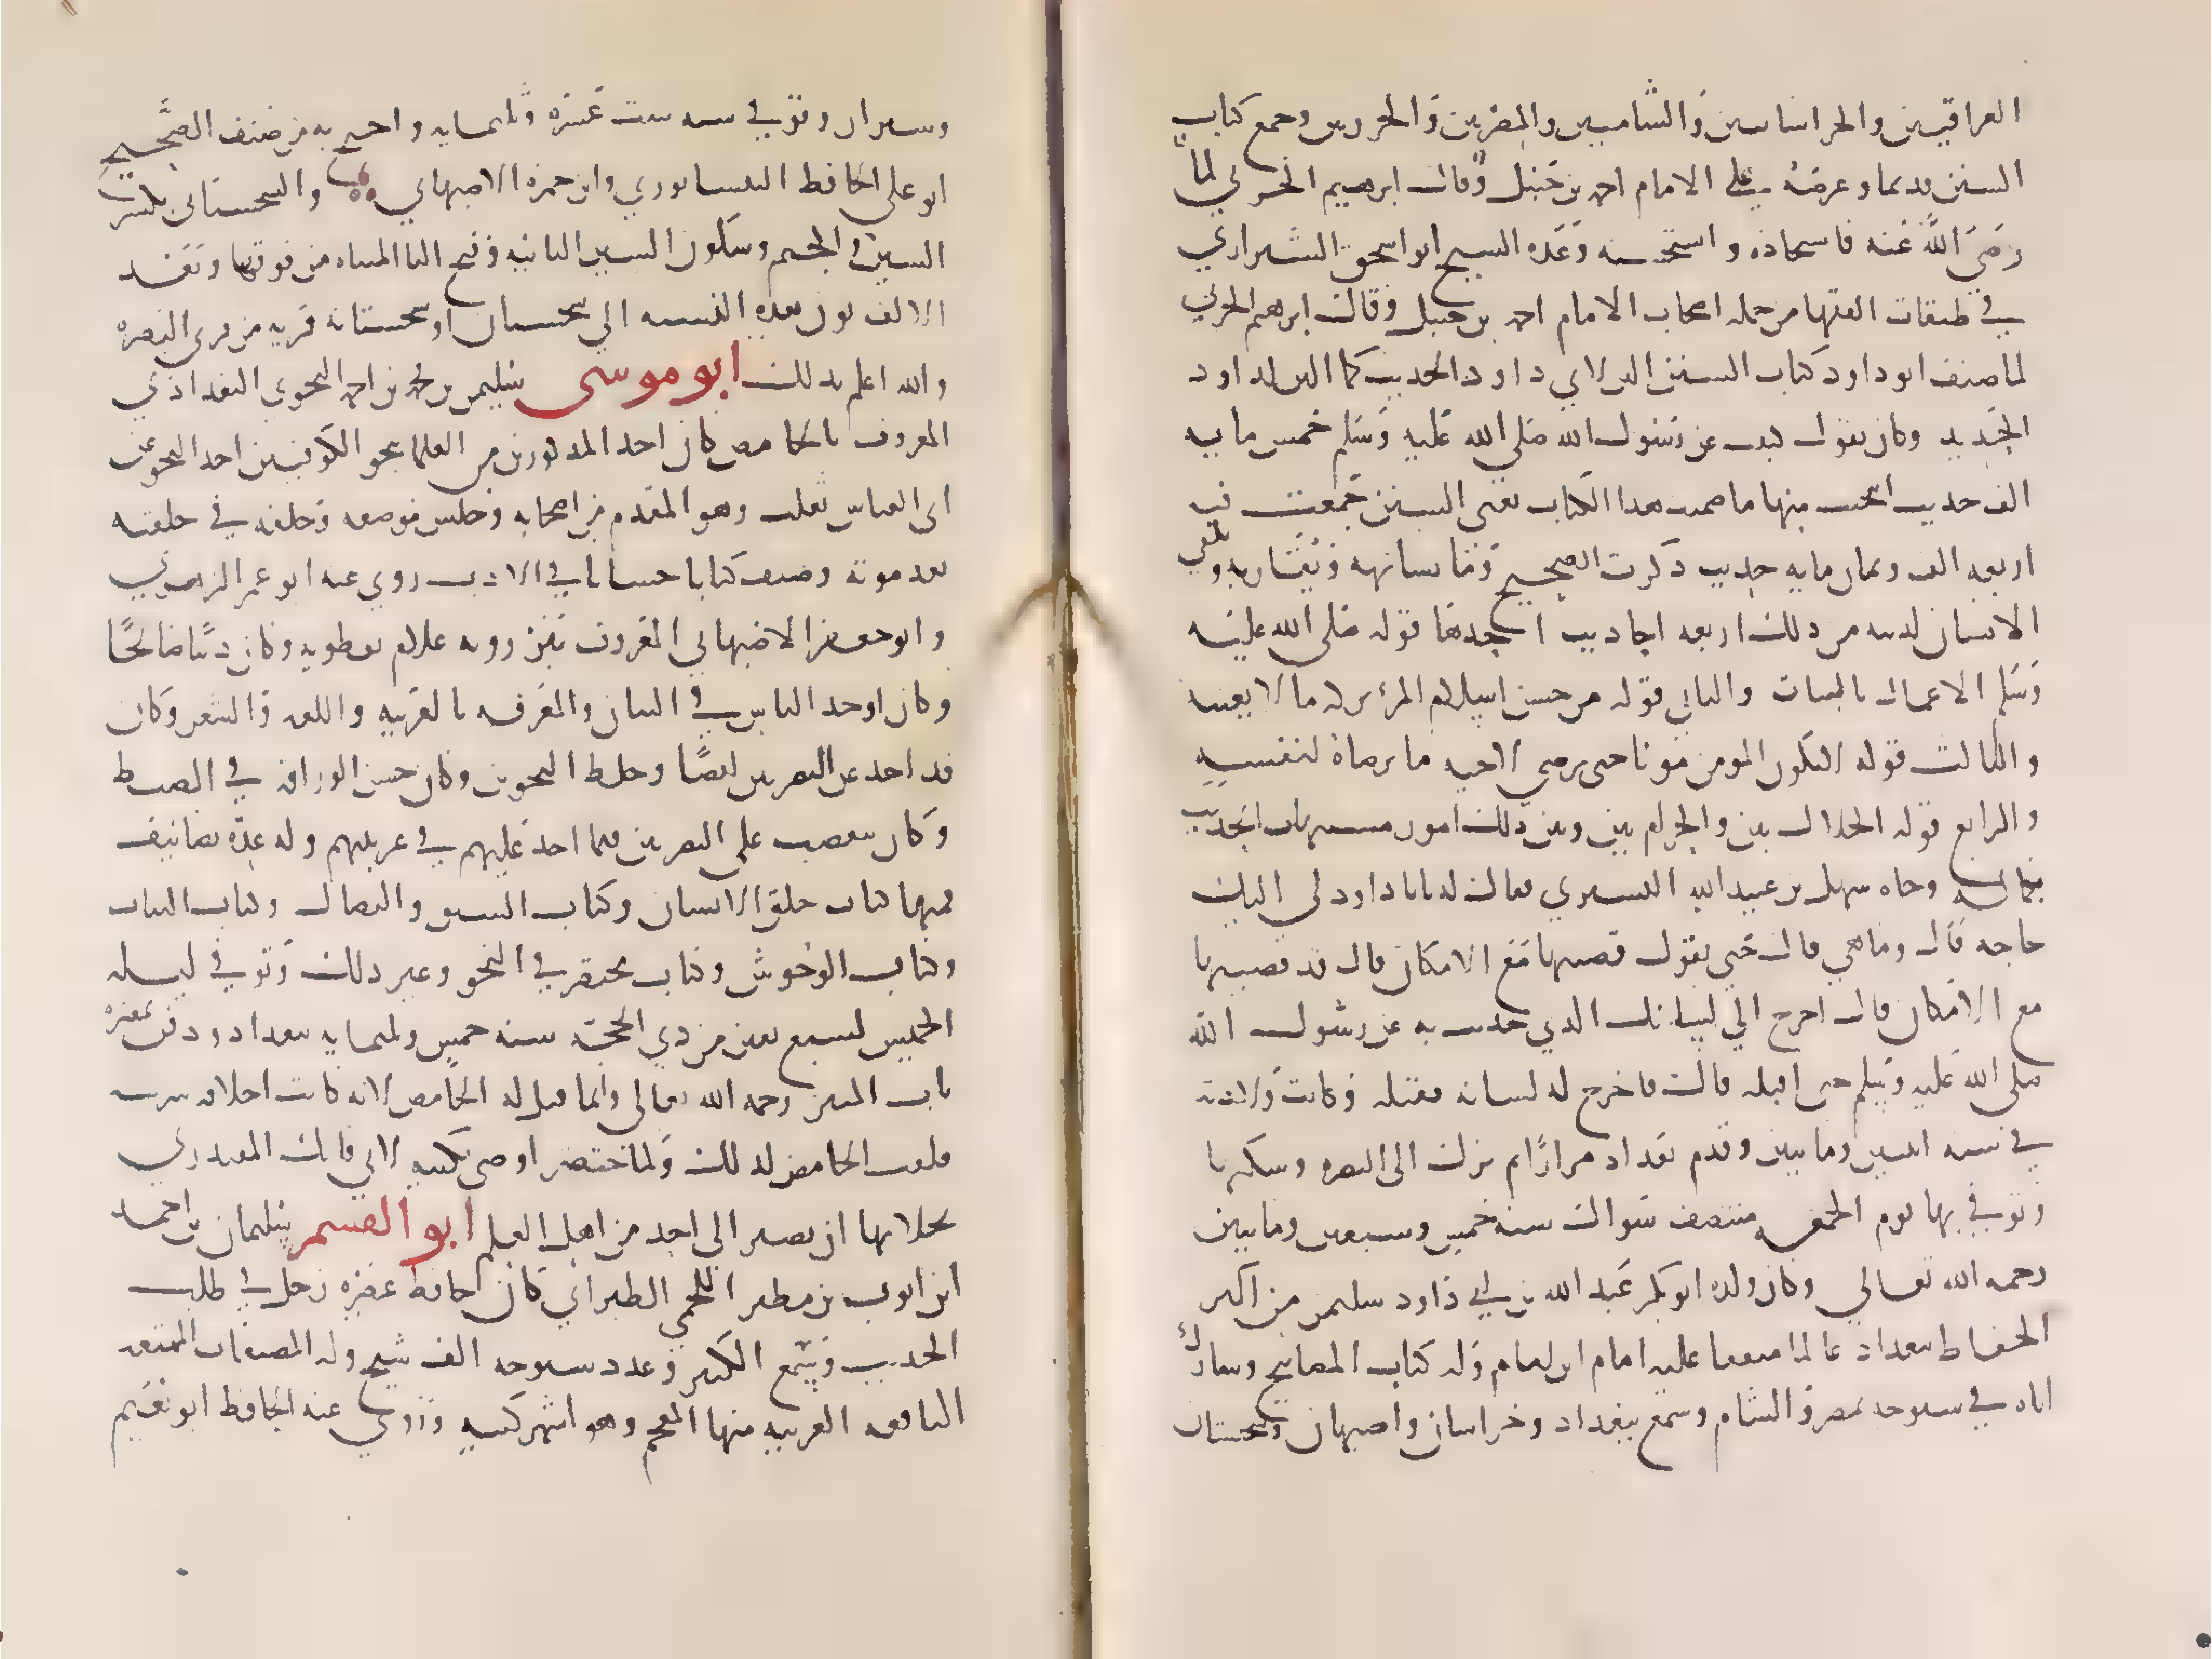 العراقيين والخراسانيين والشاميين والمصريين والجزريين وجمع كتاب
السنن قديما وعرضه على الامام احمد بن حنبل وقال ابرهيم الحربي لما
رضي الله عنه فاستجاده واستحسنه وعده الشيخ ابو اسحق الشيرازي
في طبقات الفقها من جمله اصحاب الامام احمد بن حنبل وقال ابرهيم الحربي
لما صنف ابو داود كتاب السنن الين لابي داود الحديث كما الين لداود
الحديد وكان يقول كتبت عن رسول الله صلى الله عليه وسلم خمس مايه
الف حديث انتخبت منها ما ضمنت هذا الكتاب يعني السنن جمعت فيه
اربعه الف وثمان مايه حديث ذكرت الصحيح وما يشابهه ويقاربه ويكفي
الانسان لدينه من ذلك اربعه احاديث احدها قوله صلى الله عليه
وسلم الاعمال بالنيات والثاني قوله من حسن اسلام المرء تركه ما لا يعنيه
والثالث قوله لا يكون المومن مومنا حتى يرضي لاخيه ما يرضاه لنفسه
والرابع قوله الحلال بين والحرام بين وبين ذلك امور مشتبهات الحديث
بكماله وجاه سهل بن عبيد الله التستري فقال له يابا داود لي اليك
حاجه قال وما هي قال حتى تقول قضيتها مع الامكان قال قد قضيتها
مع الامكان قال اخرج الي لسانك الذي حدثت به عن رسول الله
صلى الله عليه وسلم حتى اقبله قال فاخرج له لسانه فقبله وكانت ولادته
في سنه اثنتين ومايتين وقدم بغداد مرارا ثم نزل الى البصره وسكنها
وتوفي بها يوم الجمعه منتصف شوال سنه خمس وسبعين ومايتين
رحمه الله تعالي وكان ولده ابو بكر عبد الله بن ابي داود سليمن من اكبر
الحفاظ ببغداد عالما متفقا عليه امام ابن امام وله كتاب المصابيح وشارك
اباه في شيوخه بمصر والشام وسمع ببغداد وخراسان واصبهان وسجستان
وشيراز وتوفي سنه ست عشره وثلثمايه واحتج به من صنف الصحيح
ابو علي الحافظ النيسابوري وابن حمزه الاصبهاني والسجستاني بكسر
السين والجيم وسكون السين الثانيه وفتح التا المثناه من فوقها وبعد
الالف نون هذه النسبه الي سجستان او سجستانه قريه من قرى البصره
والله اعلم بذلك ابو موسى سليمن بن محمد بن احمد النحوي البغداذي
المعروف بالحامض كان احد المذكورين من العلما بنحو الكوفيين اخذ النحو عن
ابى العباس ثعلب وهو المقدم من اصحابه وجلس موضعه وخلفه في حلقته
بعد موته وصنف كتابا حسانا في الادب روي عنه ابو عمر الزاهد
وابو جعفر الاصبهاني المعروف ببرزويه غلام نفطويه وكان دينا صالحا
وكان اوحد الناس في البيان والمعرفه بالعربيه واللغه والشعر وكان
قد اخذ عن البصريين ايضا وخلط النحوين وكان حسن الوراقه في الضبط
وكان يتعصب على البصريين فيما اخذ عليهم في عربيتهم وله عده تصانيف
فمنها كتاب خلق الانسان وكتاب السبق والنضال وكتاب النبات
وكتاب الوحوش وكتاب مختصر في النحو وغير ذلك وتوفي ليله
الخميس لسبع بقين من ذي الحجه سنه خمس وثلثمايه ببغداد ودفن بمقبره
باب التبن رحمه الله تعالي وانما قيل له الحامض لانه كانت اخلاق شرسه
فلقب الحامض لذلك ولما احتضر اوصى بكتبه لابي فاتك المقتدري
بخلا بها ان تصير الي احد من اهل العلم ابو القسم سليمان بن احمد
ابن ايوب بن مطير اللخمي الطبراني كان حافظ عصره رحل في طلب
الحديث وسمع الكثير وعدد شيوخه الف شيخ وله المصنفات الممتعه
النافعه الغريبه منها المعجم وهو اشهر كتبه وروي عنه الحافظ ابو نعيم